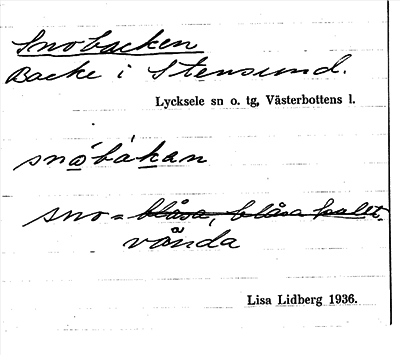 Snobacken
Backe i Stensund.
Lycksele sn o. tg, Västerbottens l.
snöbákan
sno = blåsa, blåsa kallt.
vända
Lisa Lidberg 1936.